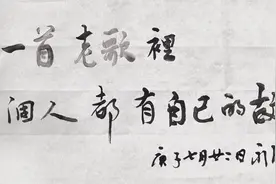 一首老歌裡
個人都有自己的故
庚子七月廿二日